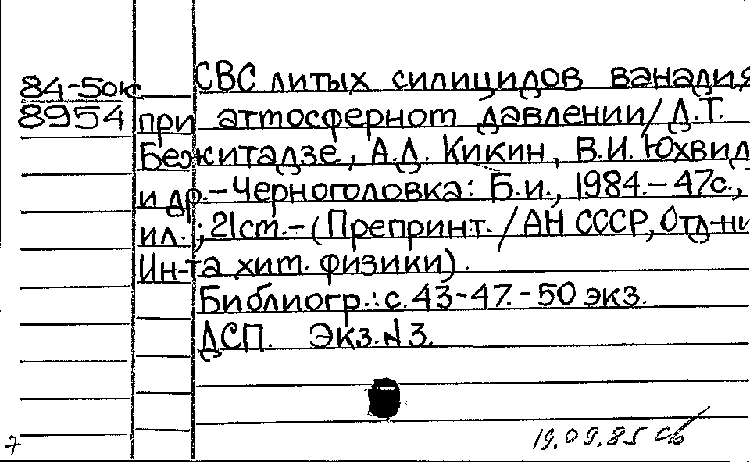 84-5ок
8954
СВС литых силицидов ванадия
при атмосферном давлении/ Д.Т.
Бежитадзе, А.Д. Кикин, В.И. Юхвид
и др.-Черноголовка: Б.и., 1984.- 47с.,
ил.; 21см.-(Препринт. /АН СССР, Отд-ни
Ин-та хим. физики).
Библиогр.: с. 43-47.-50 экз.
ДСП. Экз.№3.
19.09.85
7